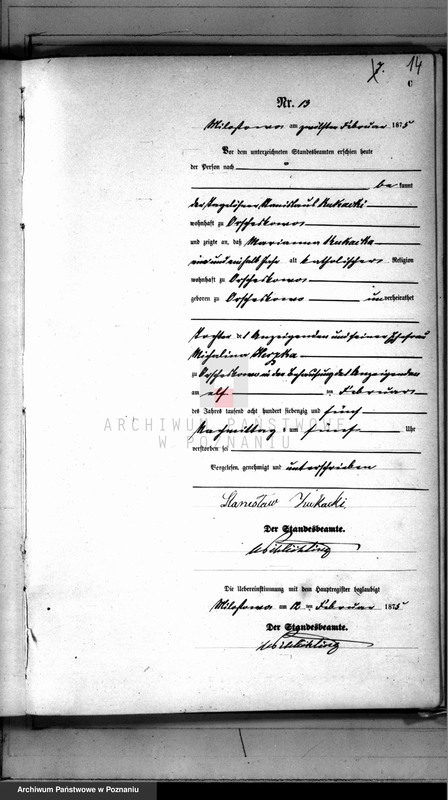 7. 14
C
Nr. 13
Miloslowo am zwölften Februar 1875
Vor dem unterzeichneten Standesbeamten erschien heute
der Person nach
be kannt
der Tagelöhner Stanislaus
wohnhaft zu Orscheskowo
und zeigte an, daß Marianna
ein und einhalb Jahr alt katholischer Religion
wohnhaft zu Orscheskowo
geboren zu Orscheskowo unverheirathet
Tochter des Anzeigenden und seiner Ehefrau
Michalina
zu Orscheskowo in der Behausung des Anzeigenden
am elf ten Februar
des Jahres tausend acht hundert siebenzig und fünf
Nachmittag s um fünf Uhr
verstorben sei
ARCHIWUM PAŃSTWOWE
W POZNANIU
Vorgelesen, genehmigt und unterschrieben
Stanisław
Der Standesbeamte.
Die Uebereinstimmung mit dem Hauptregister beglaubigt
Miloslowo am 12 ten Februar 1875
Der Standesbeamte.
Archiwum Państwowe w Poznaniu